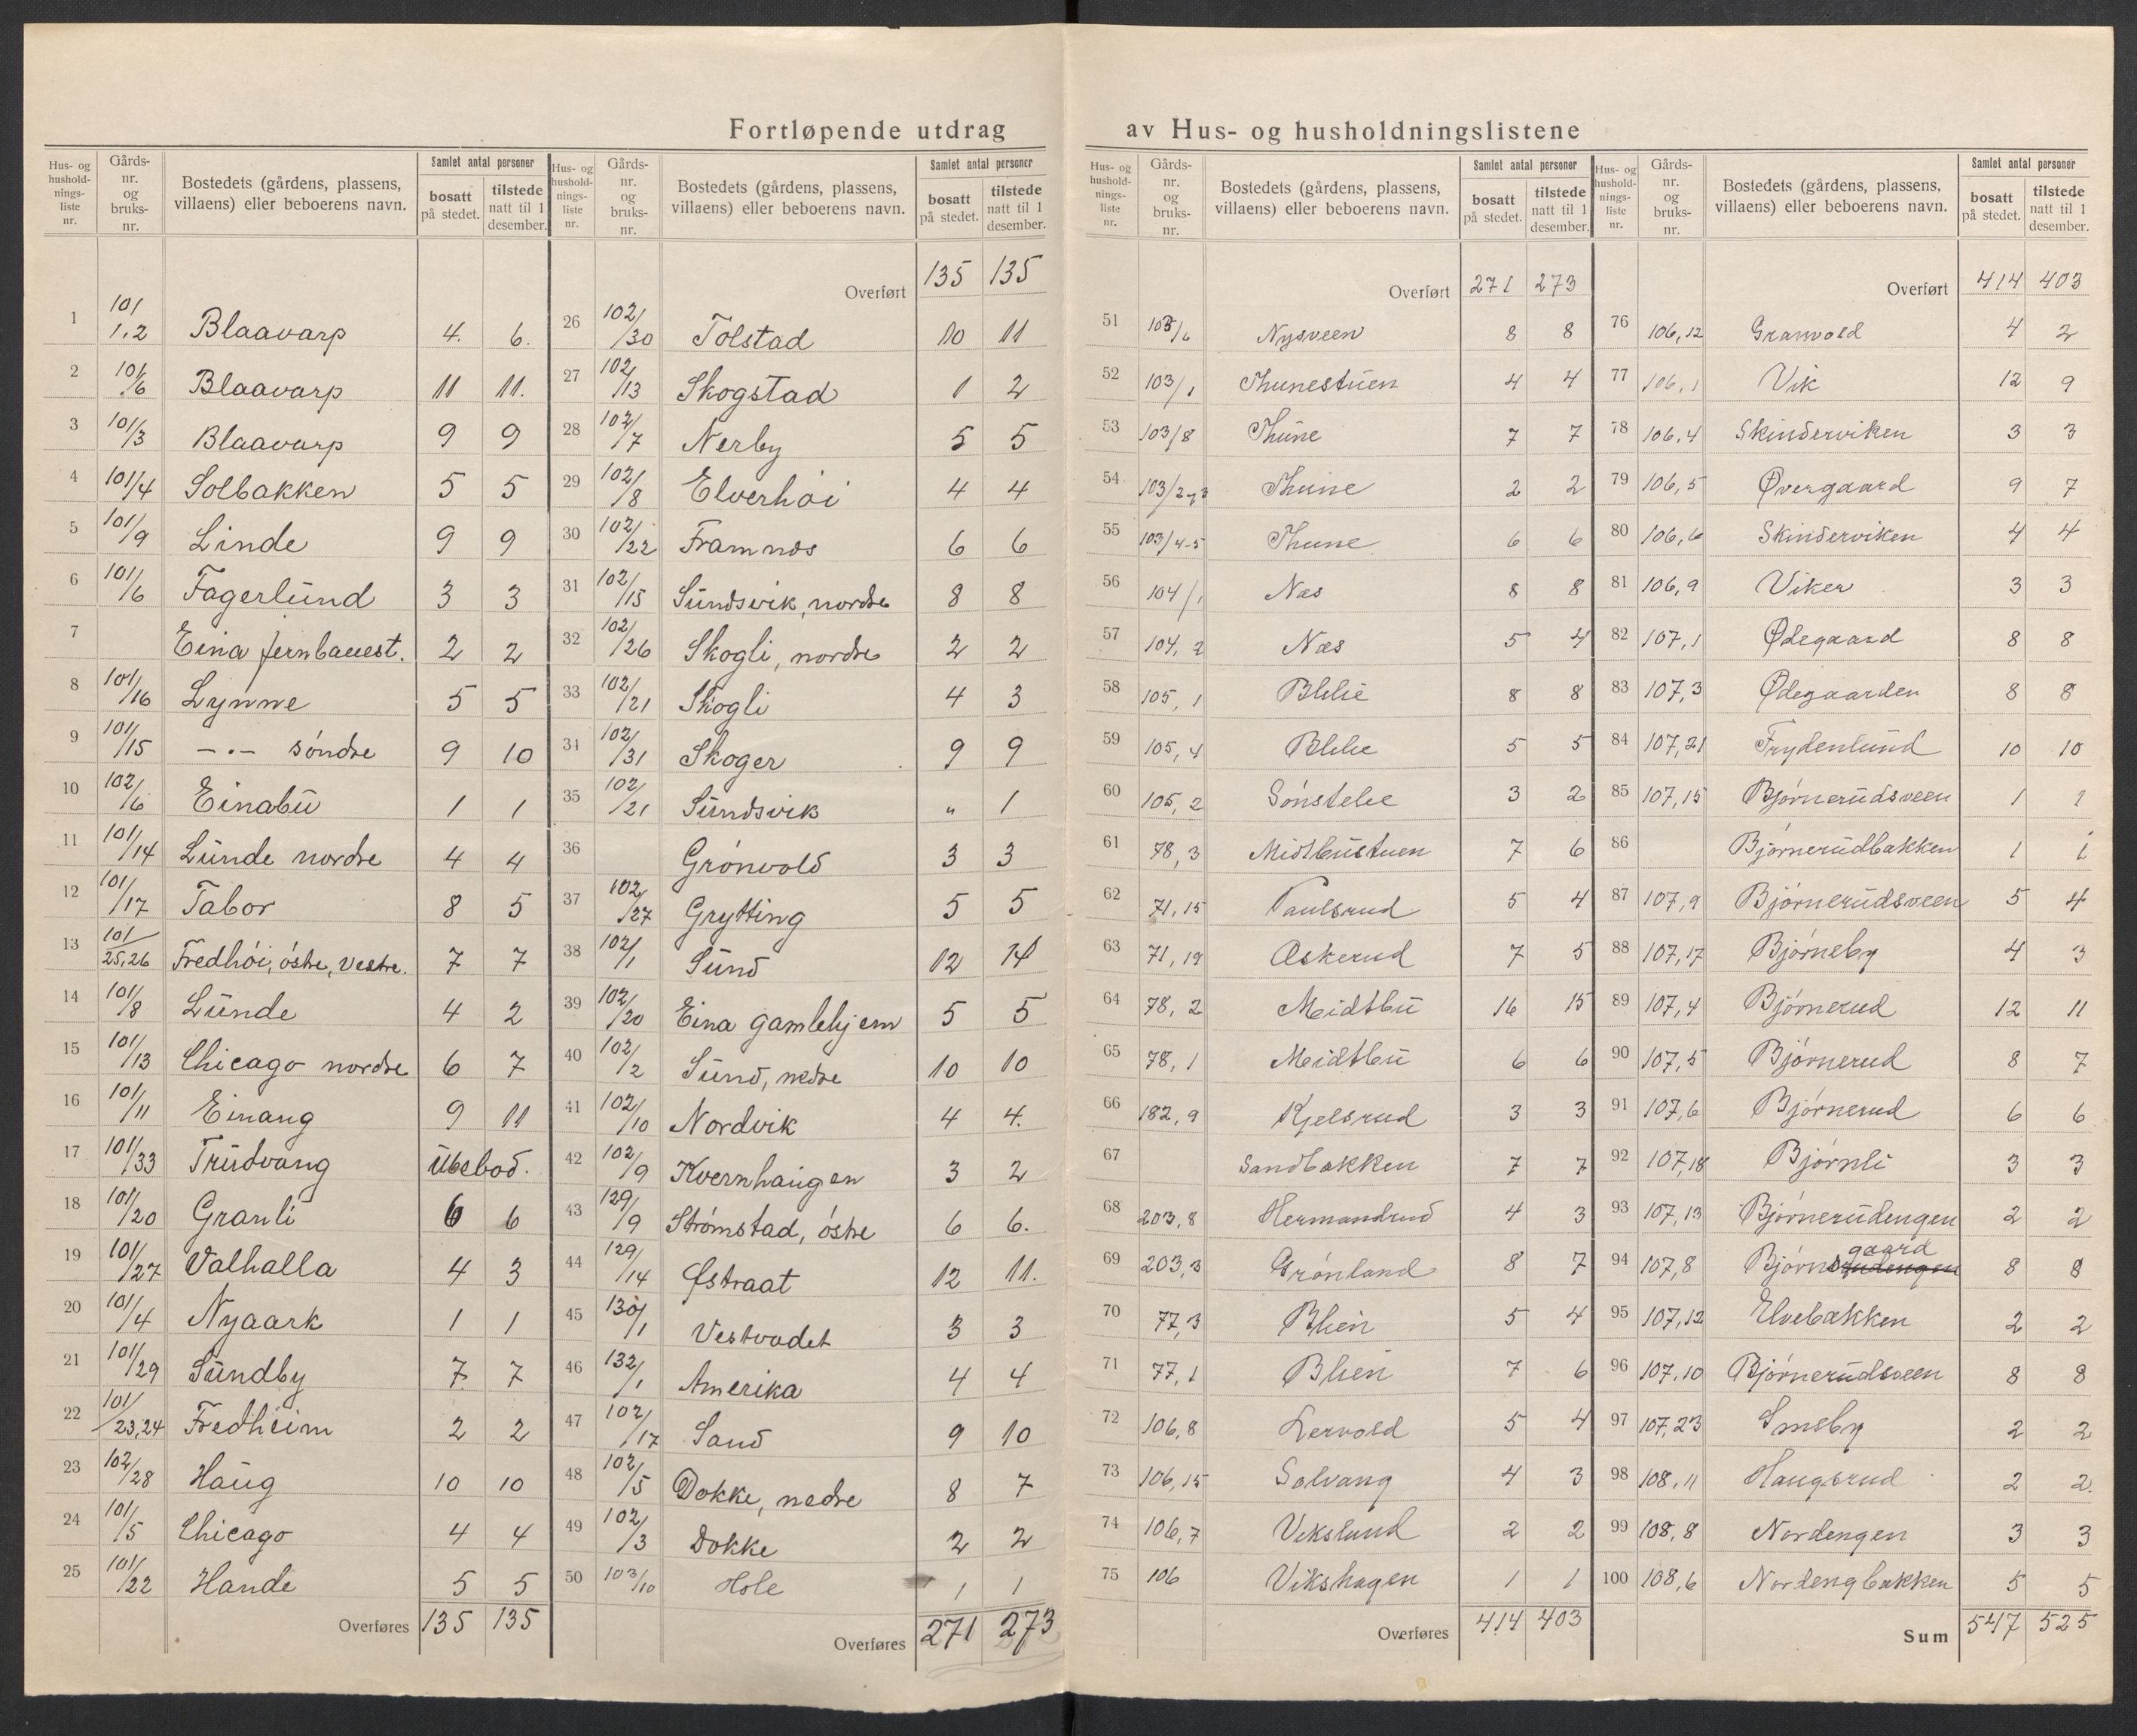 Fortløpende utdrag av Hus- og husholdningslistene
Hus- og hushold- nings- liste nr. Gårds- nr. og bruks- nr. Bostedets (gårdens, plassens, villaens) eller beboerens navn. Samlet antal personer bosatt på stedet. tilstede natt til 1 desember.
1 101/1,2 Blaavarp 4. 6.
2 101/6 Blaavarp 11 11.
3 101/3 Blaavarp 9 9
4 101/4 Solbakken 5 5
5 101/9 Linde 9 9
6 101/6 Fagerlund 3 3
7 Eina jernbanest. 2 2
8 101/16 Lynne 5 5
9 101/15 -"- söndre 9 10
10 102/6 Einabu 1 1
11 101/14 Lunde nordre 4 4
12 101/17 Tabor 8 5
13 101/25,26 Fredhöi, östre, vestre. 7 7
14 101/8 Lunde 4 2
15 101/13 Chicago nordre 6 7
16 101/11 Einang 9 11
17 101/33 Trudvang Ubebod.
18 101/20 Granli 6 6
19 101/27 Valhalla 4 3
20 101/4 Nyaark 1 1
21 101/29 Sundby 7 7
22 101/23,24 Fredheim 2 2
23 102/28 Haug 10 10
24 101/5 Chicago 4 4
25 101/22 Hande 5 5
Overføres 135 135
Hus- og hushold- nings- liste nr. Gårds- nr. og bruks- nr. Bostedets (gårdens, plassens, villaens) eller beboerens navn. Samlet antal personer bosatt på stedet. tilstede natt til 1 desember.
Overført 135 135
26 102/30 Tolstad 10 11
27 102/13 Skogstad 1 2
28 102/7 Nerby 5 5
29 102/8 Elverhøi 4 4
30 102/22 Framnes 6 6
31 102/15 Sundsvik, nordre 8 8
32 102/26 Skogli, nordre 2 2
33 102/21 Skogli 4 3
34 102/31 Skoger 9 9
35 102/21 Sundsvik " 1
36 Grönvold 3 3
37 102/27 Grytting 5 5
38 102/1 Sund 12 14
39 102/20 Eina gamlehjem 5 5
40 102/2 Sund, nedre 10 10
41 102/10 Nordvik 4 4.
42 102/9 Kvernhaugen 3 2
43 129/9 Strömstad, östre 6 6.
44 129/14 Østraat 12 11.
45 130/1 Vestvadet 3 3
46 132/1 Amerika 4 4
47 102/17 Sand 9 10
48 102/5 Dokke, nedre 8 7
49 102/3 Dokke 2 2
50 103/10 Hole 1 1
Overføres 271 273
Hus- og hushold- nings- liste nr. Gårds- nr. og bruks- nr. Bostedets (gårdens, plassens, villaens) eller beboerens navn. Samlet antal personer bosatt på stedet. tilstede natt til 1 desember.
Overført 271 273
51 103/6 Nysveen 8 8
52 103/1 Thunestuen 4 4
53 103/8 Thune 7 7
54 103/2,3 Thune 2 2
55 103/4-5 Thune 6 6
56 104/1 Næs 8 8
57 104,2 Næs 5 4
58 105,1 Blilie 8 8
59 105,4 Blilie 5 5
60 105,2 Sönstelie 3 2
61 78,3 Midtbustuen 7 6
62 71,15 Paulsrud 5 4
63 71,19 Askerud 7 5
64 78,2 Meidtbu 16 15
65 78,1 Meidtbu 6 6
66 182,9 Kjelsrud 3 3
67 Sandbakken 7 7
68 203,8 Hermandrud 4 3
69 203,3 Grönland 8 7
70 77,3 Blien 5 4
71 77,1 Blien 7 6
72 106,8 Lervold 5 4
73 106,15 Solvang 4 3
74 106,7 Vikslund 2 2
75 106 Vikshagen 1 1
Overføres 414 403
Hus- og hushold- nings- liste nr. Gårds- nr. og bruks- nr. Bostedets (gårdens, plassens, villaens) eller beboerens navn. Samlet antal personer bosatt på stedet. tilstede natt til 1 desember.
Overført 414 403
76 106,12 Granvold 4 2
77 106,1 Vik 12 9
78 106,4 Skinderviken 3 3
79 106,5 Øvergaard 9 7
80 106,6 Skinderviken 4 4
81 106,9 Viker 3 3
82 107,1 Ødegaard 8 8
83 107,3 Ødegaarden 8 8
84 107,21 Frydenlund 10 10
85 107,15 Bjørnerudsveen 1 1
86 Bjørnerudbakken 1 1
87 107,9 Bjørnerudsveen 5 4
88 107,17 Bjørneby 4 3
89 107,4 Bjørnerud 12 11
90 107,5 Bjørnerud 8 7
91 107,6 Bjørnerud 6 6
92 107,18 Bjørnli 3 3
93 107,13 Bjørnerudengen 2 2
94 107,8 Bjørnerudengen gaard 8 8
95 107,12 Elvebakken 2 2
96 107,10 Bjørnerudsveen 8 8
97 107,23 Smsby 2 2
98 108,11 Haugsrud 2 2.
99 108,8 Nordengen 3 3
100 108,6 Nordengbakken 5 5
Sum 547 525